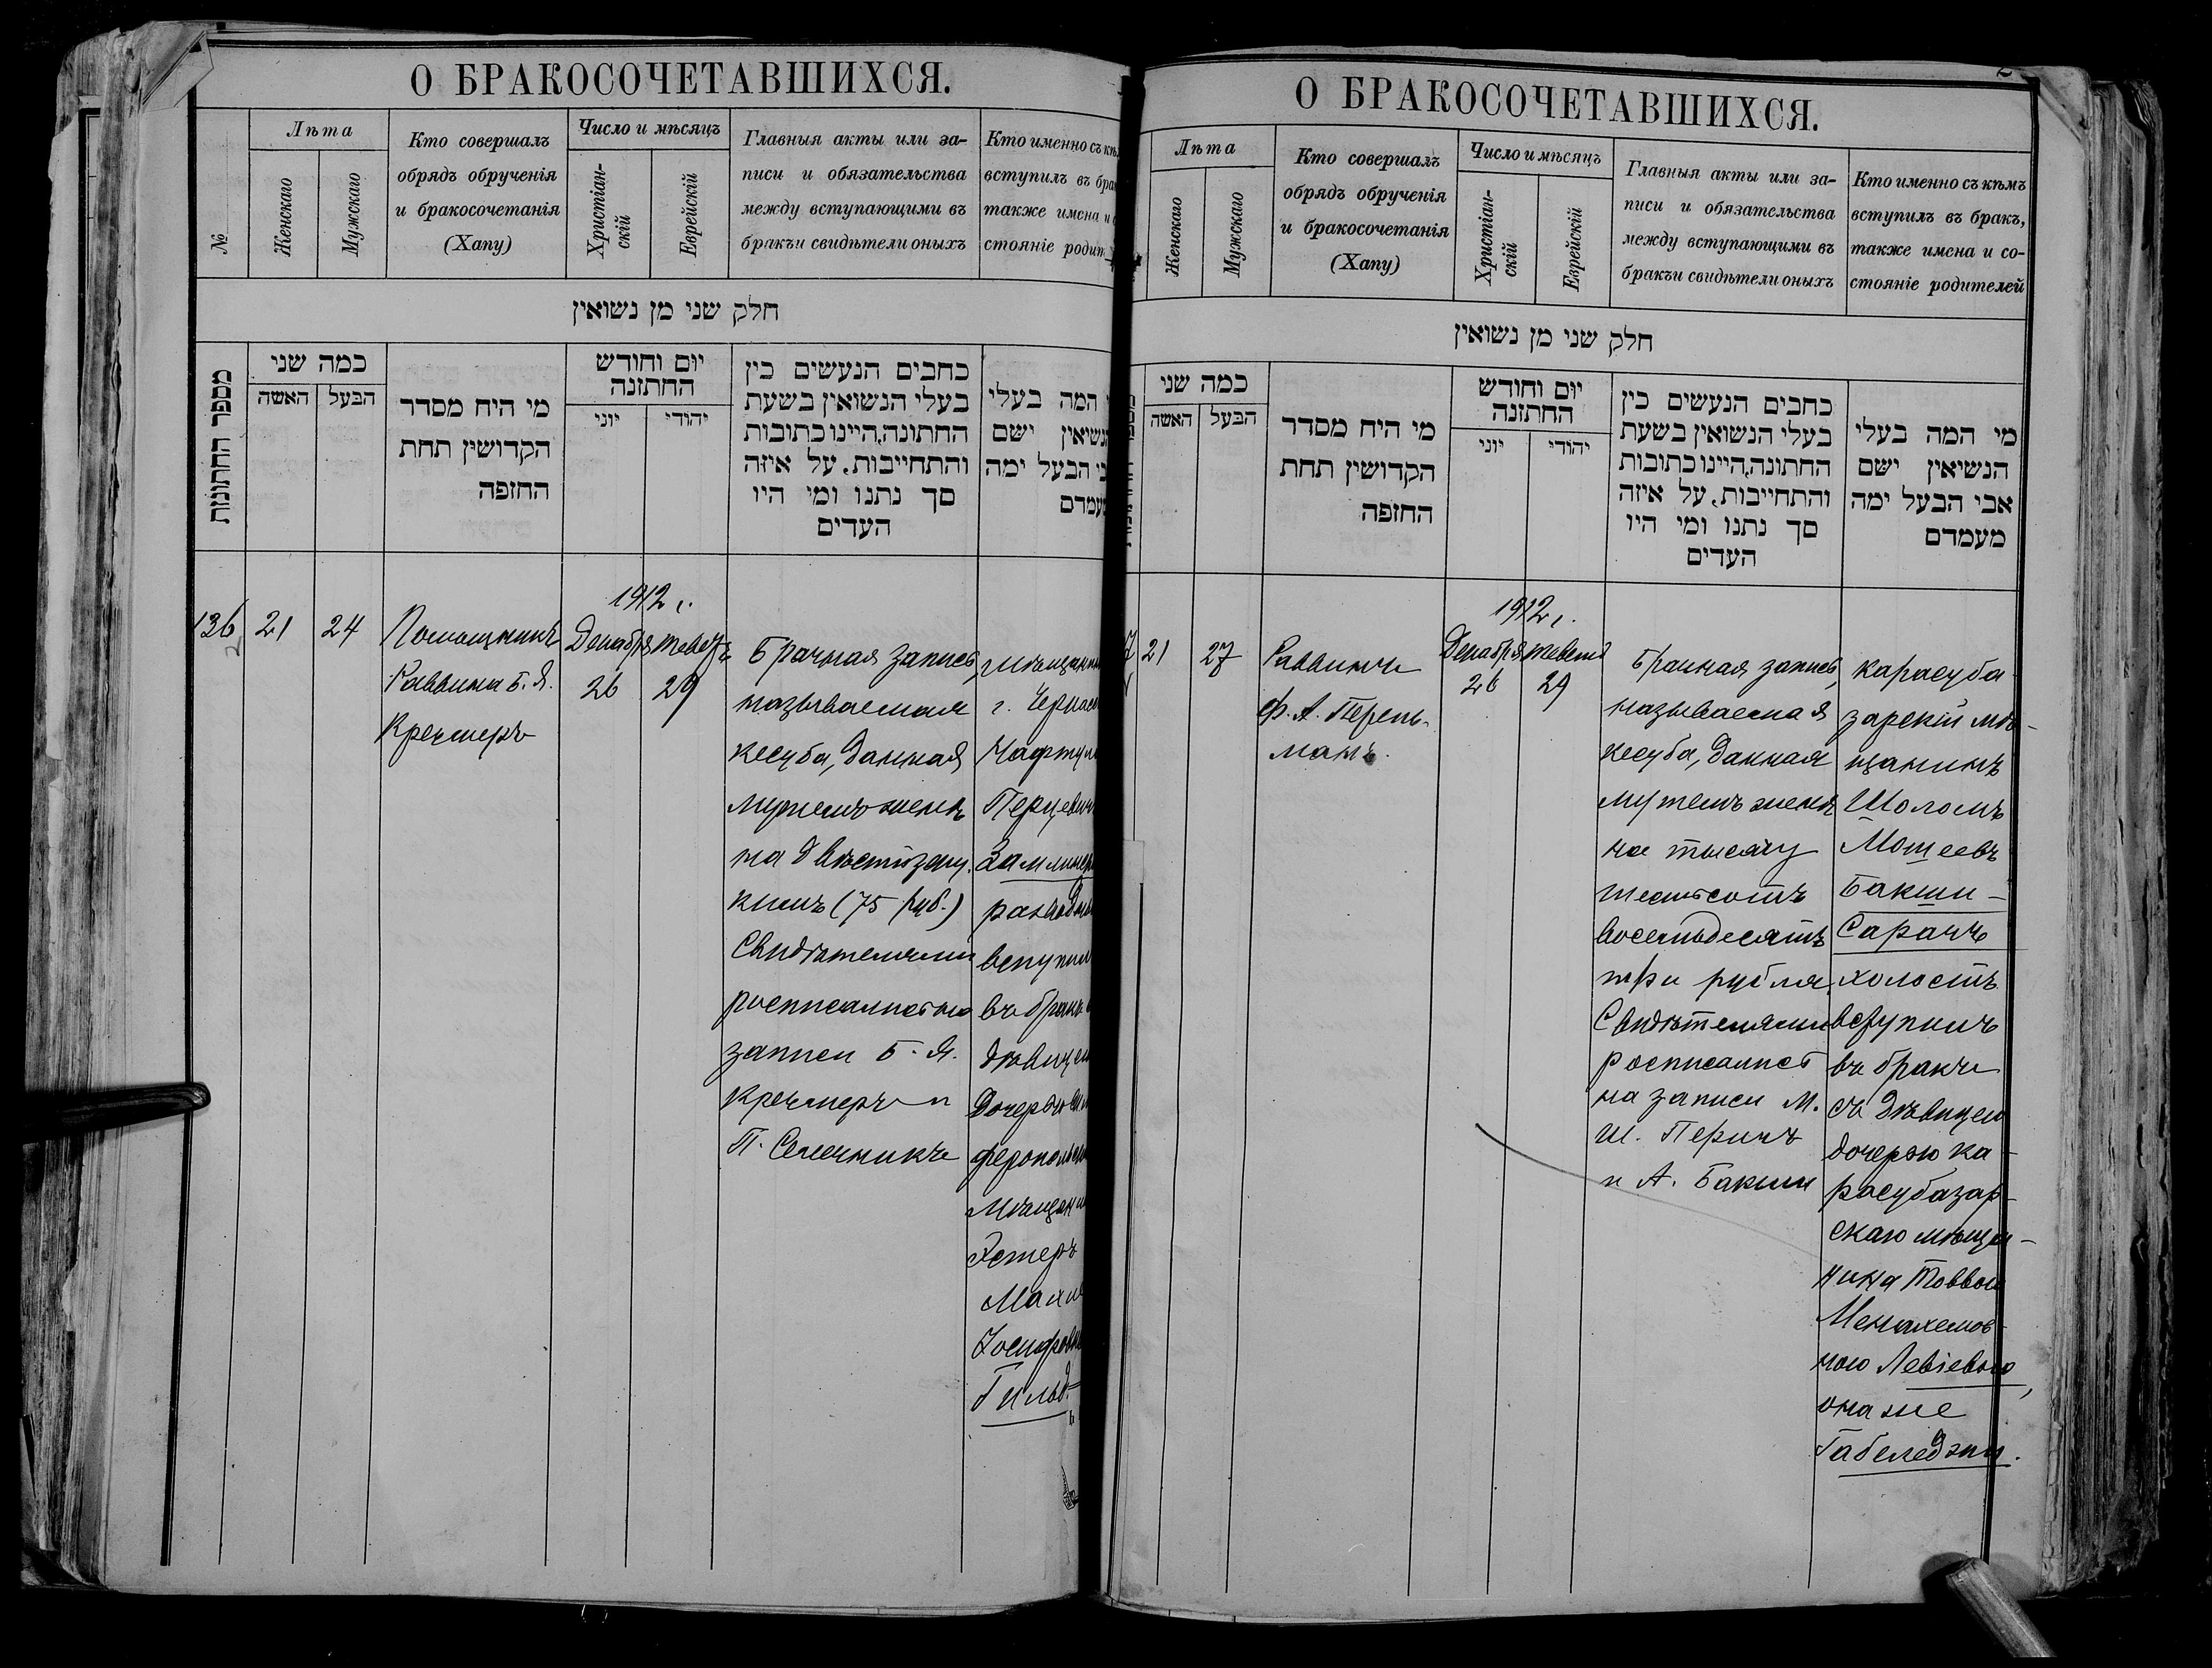 О БРАКОСОЧЕТАВШИХСЯ.
№
Лѣта
Женскаго
Мужскаго
Кто совершалъ
обрядъ обрученія
и бракосочетанія
(Хапу)
Число и мѣсяцъ
Христіан-
скій
Еврейскій
Главныя акты или за-
писи и обязательства
между вступающими въ
бракъи свидѣтели оныхъ
Кто именно съ
вступилъ въ
также имена и
стояніе
חלק שני מן נשואין
מספר החתונות
כמה שני
האשה
הבעל
מי היה מסדר
הקדושין תחת
החופה
יום וחודש
החתונה
יוני
יהודי
כתבים הנעשים בין
בעלי הנשואין בשעת
החתונה,היינו כתובות
והתחייבות, על איזה
סך נתנו ומי היו
העדים
המה בעלי
ישם
הבעל ימה
136
21
24
Помощникъ
Раввина Б. Я.
Кречмеръ
1912 г.
Декабря
26
Теветъ
29
Брачная запись,
называемая
кесуба, данная
мужемъ женѣ
на двѣсти зеку
кимъ (75 руб.)
Свидѣтелями
росписались на
записи Б. Я.
Кречмеръ и
П. Селечникъ
г.
въ бракъ
Эстеръ
О БРАКОСОЧЕТАВШИХСЯ.
Лѣта
Женскаго
Мужскаго
Кто совершалъ
обрядъ обрученія
и бракосочетанія
(Хапу)
Число и мѣсяцъ
Христіан-
скій
Еврейскій
Главныя акты или за-
писи и обязательства
между вступающими въ
бракъи свидѣтели оныхъ
Кто именно съ кѣмъ
вступилъ въ бракъ,
также имена и со-
стояніе родителей
חלק שני מן נשואין
כמה שני
האשה
הבעל
מי היה מסדר
הקדושין תחת
החופה
יום וחודש
החתונה
יוני
יהודי
כתבים הנעשים בין
בעלי הנשואין בשעת
החתונה,היינו כתובות
והתחייבות, על איזה
סך נתנו ומי היו
העדים
מי המה בעלי
הנשיאין ישם
אבי הבעל ימה
מעמדם
7
21
27
Раввинъ
Ф. А. Перель-
манъ.
1912 г.
Декабря
26
Тевета
29
Брачная запись,
называемая
кесуба, данная
мужемъ женѣ
на тысячу
шестьсотъ
восемьдесятъ
три рубля.
Свидѣтелями
росписались
на записи М.
Ш. Перичъ
и А. Бакши
карасуба
зарскій мѣ-
щанинъ
Шоломъ
Мошеевъ
Бакши-
Сарачъ
холостъ
вступилъ
въ бракъ
съ дѣвицею
дочерью ка-
расубазар-
скаго мѣща-
нина Товвою
Менахемов-
ною Левіевою,
она же
Габеледжи.